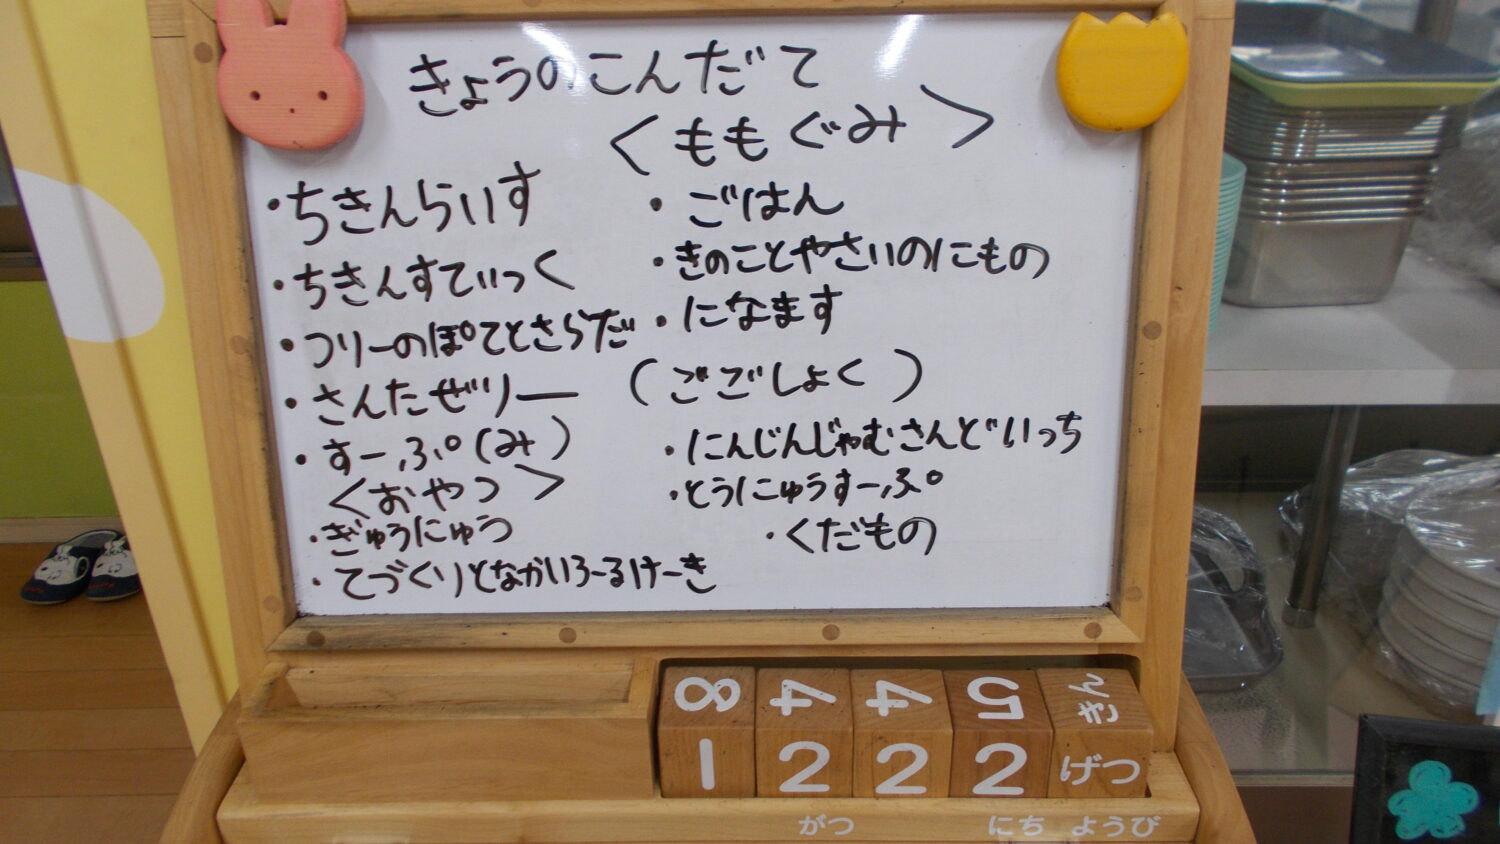 きょうのこんだて
・ちきんらいす
・ちきんすてぃっく
・つりーのぽてとさらだ
・さんたぜりー
・すーぷ(み)
<おやつ>
・ぎゅうにゅう
・てづくりとなかいろーるけーき
<ももぐみ>
・ごはん
・きのことやさいのにもの
・になます
(ごごしょく)
・にんじんじゃむさんどいっち
・とうにゅうすーぷ
・くだもの
8 4 4 5 きん
1 2 2 2 げつ
がつ にち ようび